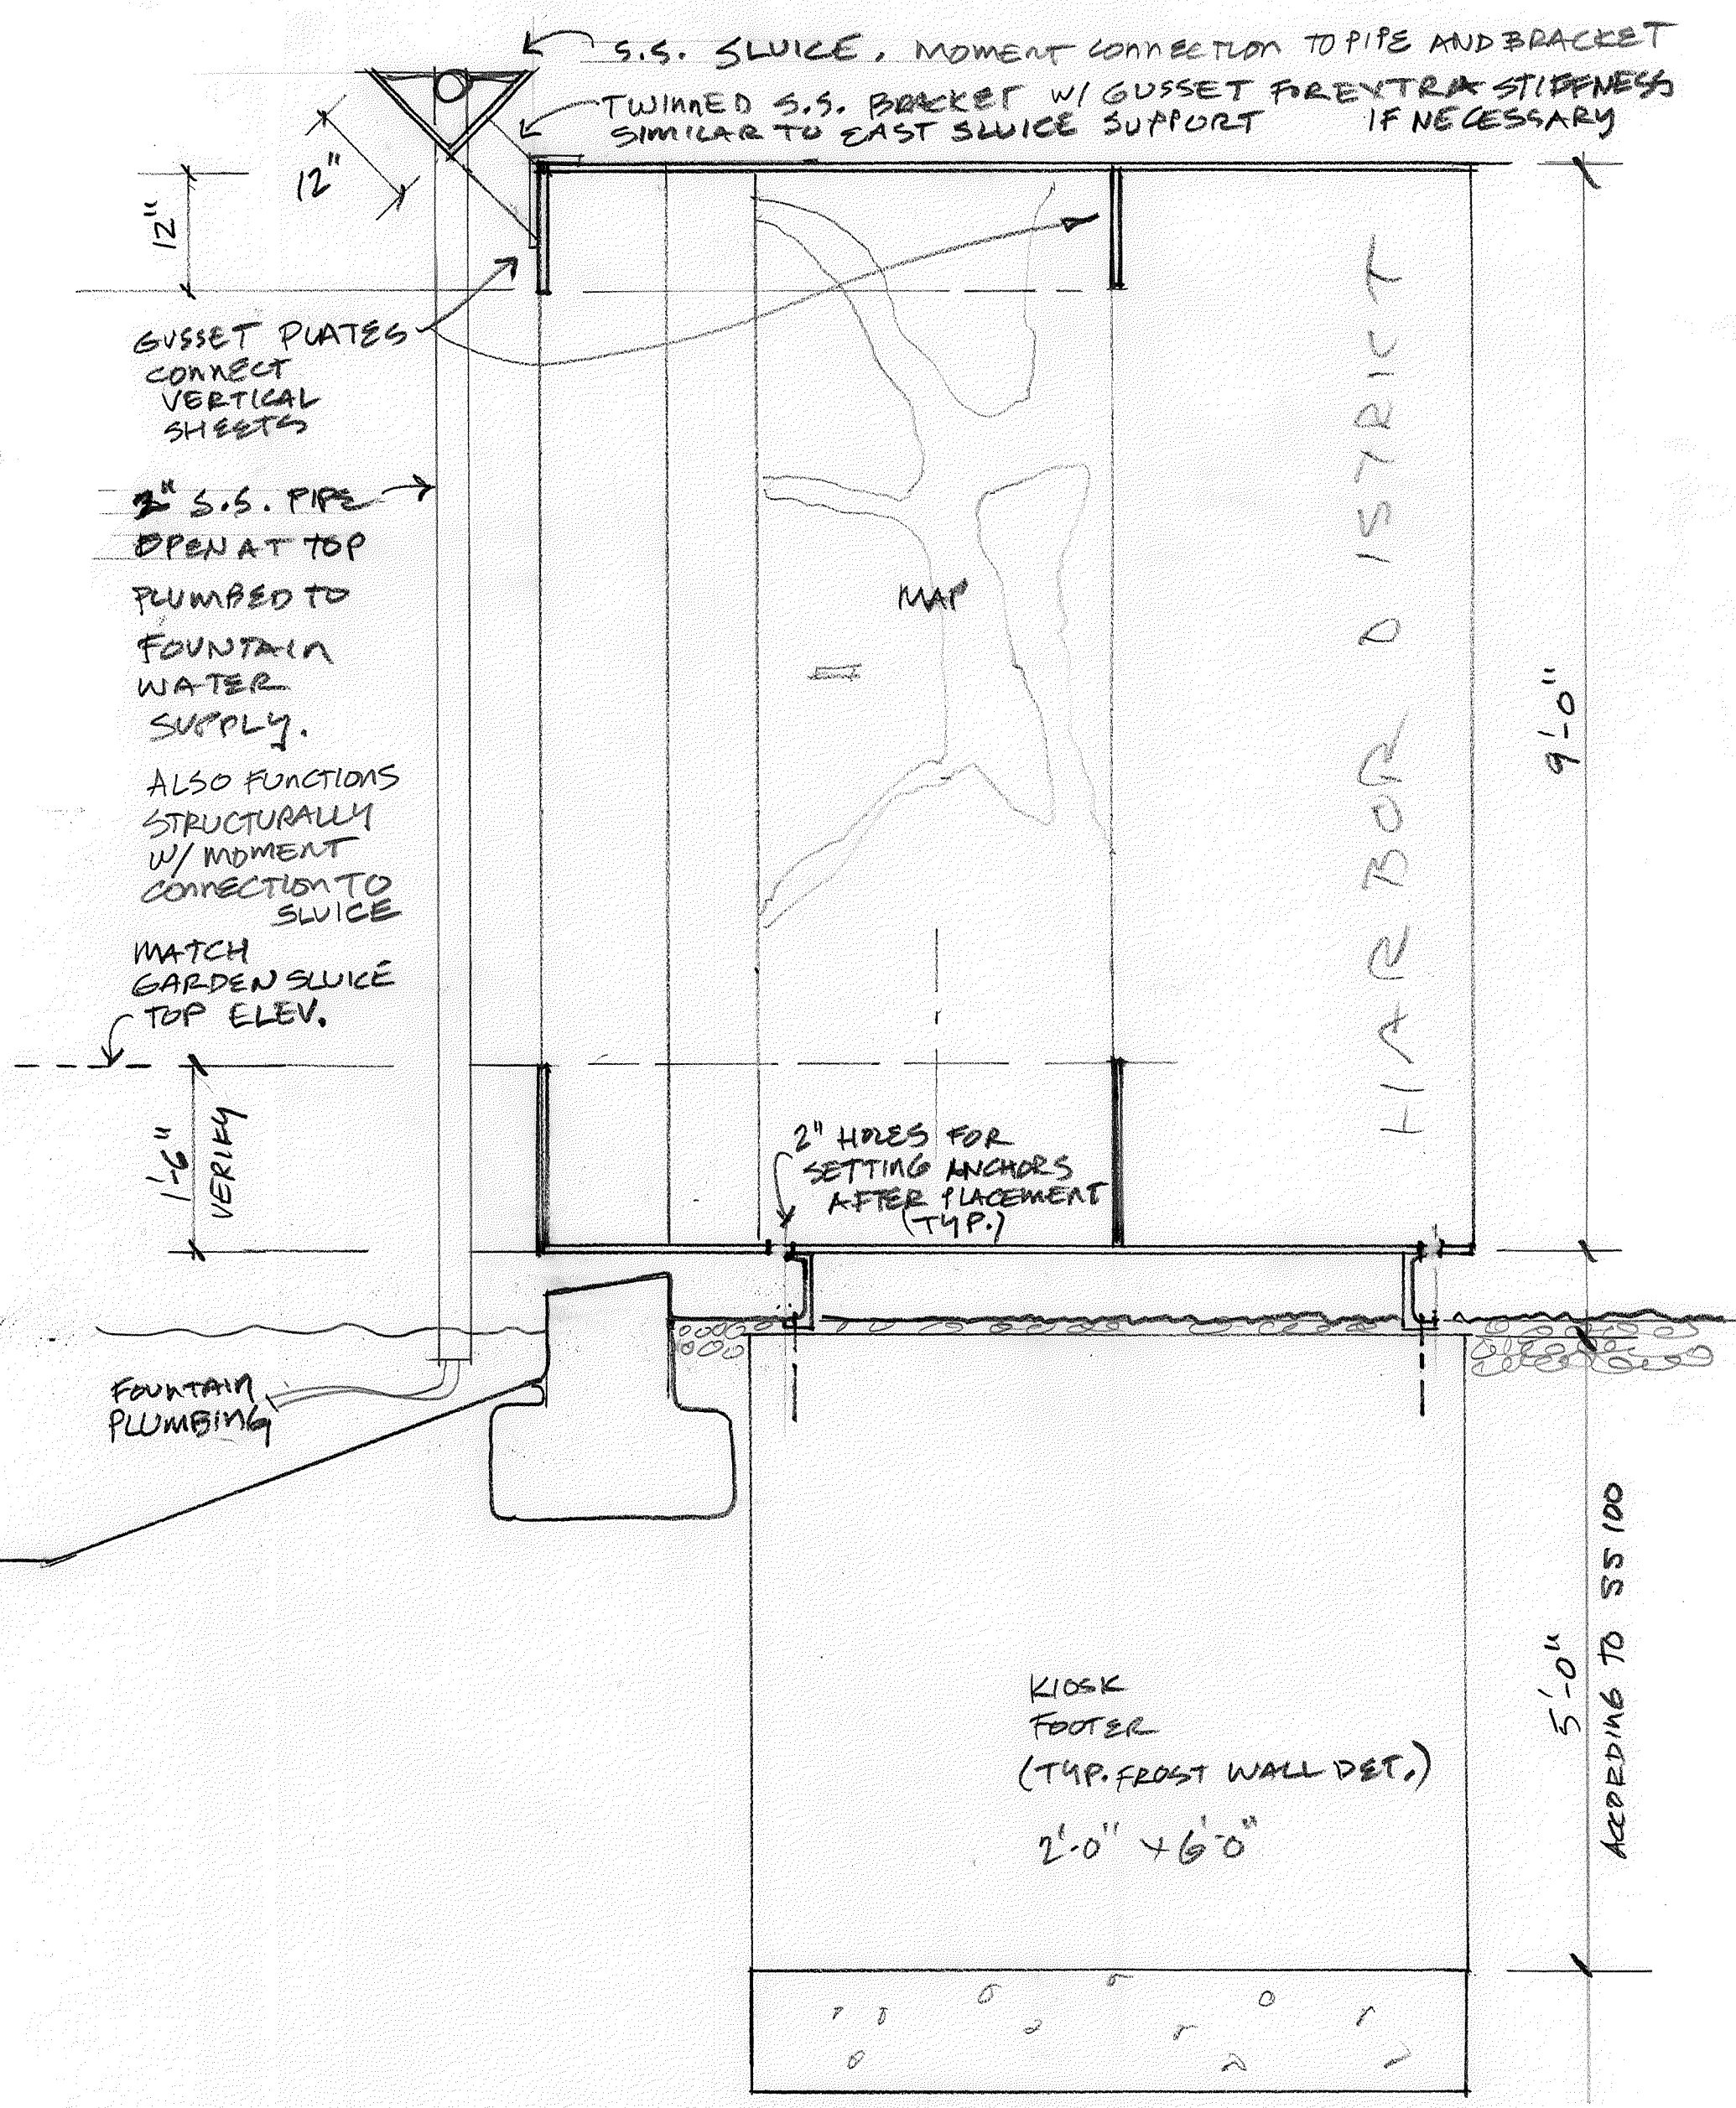 S.S. SLUICE. MOMENT CONNECTION TO PIPE AND BRACKET
TWINNED S.S. BRACKET W/ GUSSET FOR EXTRA STIFFNESS
SIMILAR TO EAST SLUICE SUPPORT IF NECESSARY
12"
12"
GUSSET PLATES
CONNECT
VERTICAL
SHEETS
2" S.S. PIPE
OPEN AT TOP
PLUMBED TO
FOUNTAIN
WATER
SUPPLY.
ALSO FUNCTIONS
STRUCTURALLY
W/ MOMENT
CONNECTION TO
SLUICE
MATCH
GARDEN SLUICE
TOP ELEV.
1'-6"
VERIFY
MAP
HARBOR DISTRICT
9'-0"
2" HOLES FOR
SETTING ANCHORS
AFTER PLACEMENT
(TYP.)
FOUNTAIN
PLUMBING
KIOSK
FOOTER
(TYP. FROST WALL DET.)
2'-0" x 6'-0"
5'-0"
ACCORDING TO SS 100